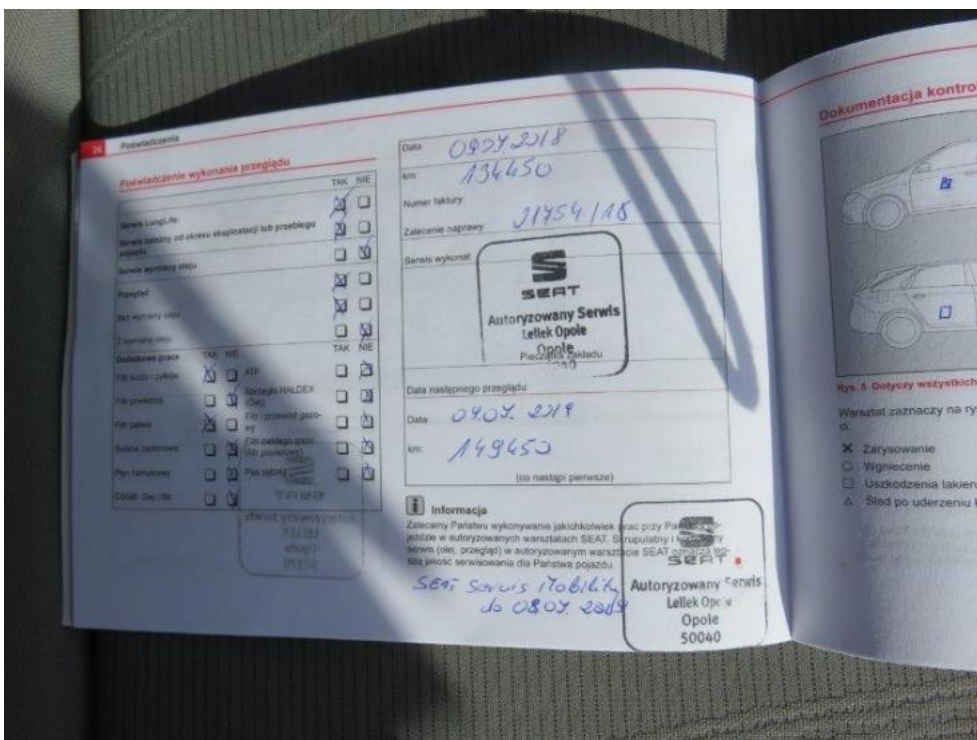 24 Poświadczenia
Poświadczenie wykonania przeglądu
TAK NIE
Serwis LongLife:
Serwis zależny od okresu eksploatacji lub przebiegu
pojazdu
Serwis wymiany oleju
Przegląd
Bez wymiany oleju
Z wymianą oleju
Dodatkowe prace TAK NIE TAK NIE
Filtr kurzu i pyłków ATF
Filtr powietrza Sprzęgło HALDEX
(Olej)
Filtr paliwa Filtr i przewód gazo-
wy
Świece zapłonowe Filtr ciekłego gazu
(fib papierowy)
Płyn hamulcowy Pas zębaty
DSG®: Olej i filtr
Autoryzowany Serwis
LELLEK
Opole
Data: 09.07.2018
km: 134450
Numer faktury:
Zalecenie naprawy: 21754/18
Serwis wykonał:
SEAT
Autoryzowany Serwis
Lellek Opole
Opole
Pieczątka zakładu
Data następnego przeglądu:
Data: 09.07.2019
km: 149450
(co nastąpi pierwsze)
i Informacja
Zalecamy Państwu wykonywanie jakichkolwiek prac przy
jeździe w autoryzowanych warsztatach SEAT.
serwis (olej, przegląd) w autoryzowanym warsztacie SEAT oznacza lep-
szą jakość serwisowania dla Państwa pojazdu.
SEAT Serwis Mobility
do 08.07.2019
SEAT
Autoryzowany Serwis
Lellek Opole
Opole
50040
Dokumentacja kontro
Rys. 5 Dotyczy wszystkich
Warsztat zaznacza na ry
ci:
X Zarysowanie
Wgniecenie
Uszkodzenia lakieru
Ślad po uderzeniu